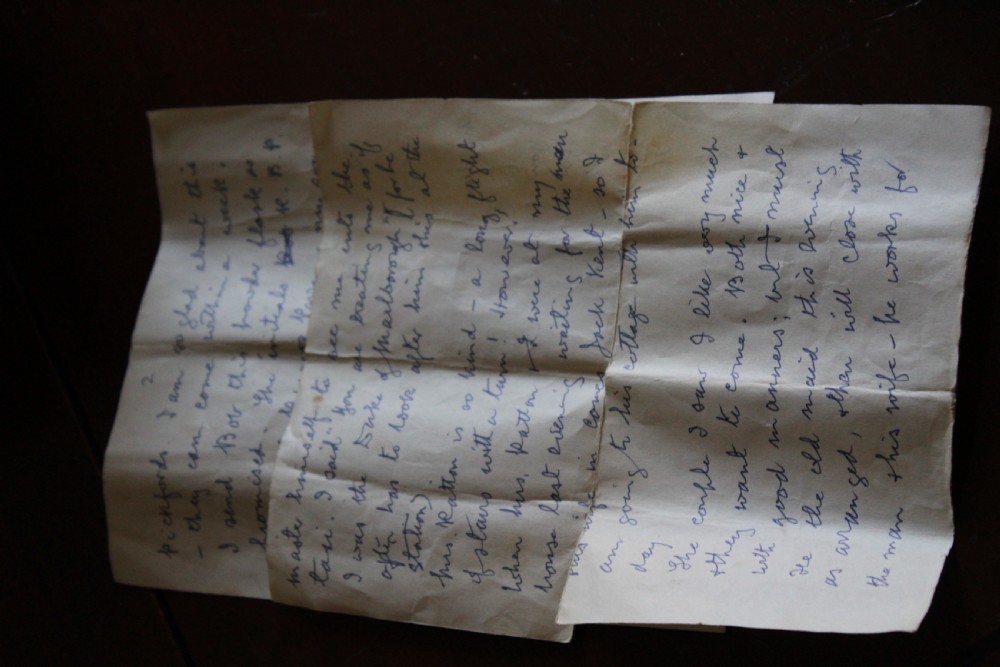 2
Pickfords. I am so glad about this
- they can come within a week.
I send Bow this handy flask as
promised. The initials R. B. P.
maste himself to see me into the
taxi. I said "You are treating me as if
I was the Duke of Marlborough" (for he
often has to look after him this at the
station)
Mrs. Ratton is so kind - a long flight
of stairs with a turn! However,
when Mrs Ratton & I were at my
house last evening waiting for the man
Jock Kent - so I
am going to his cottage with him to-
day
The couple I saw I like very much
& they want to come. Both nice &
with good manners; but I must
see the old maid this evening
as arranged, & than will close with
the man & his wife - he works for